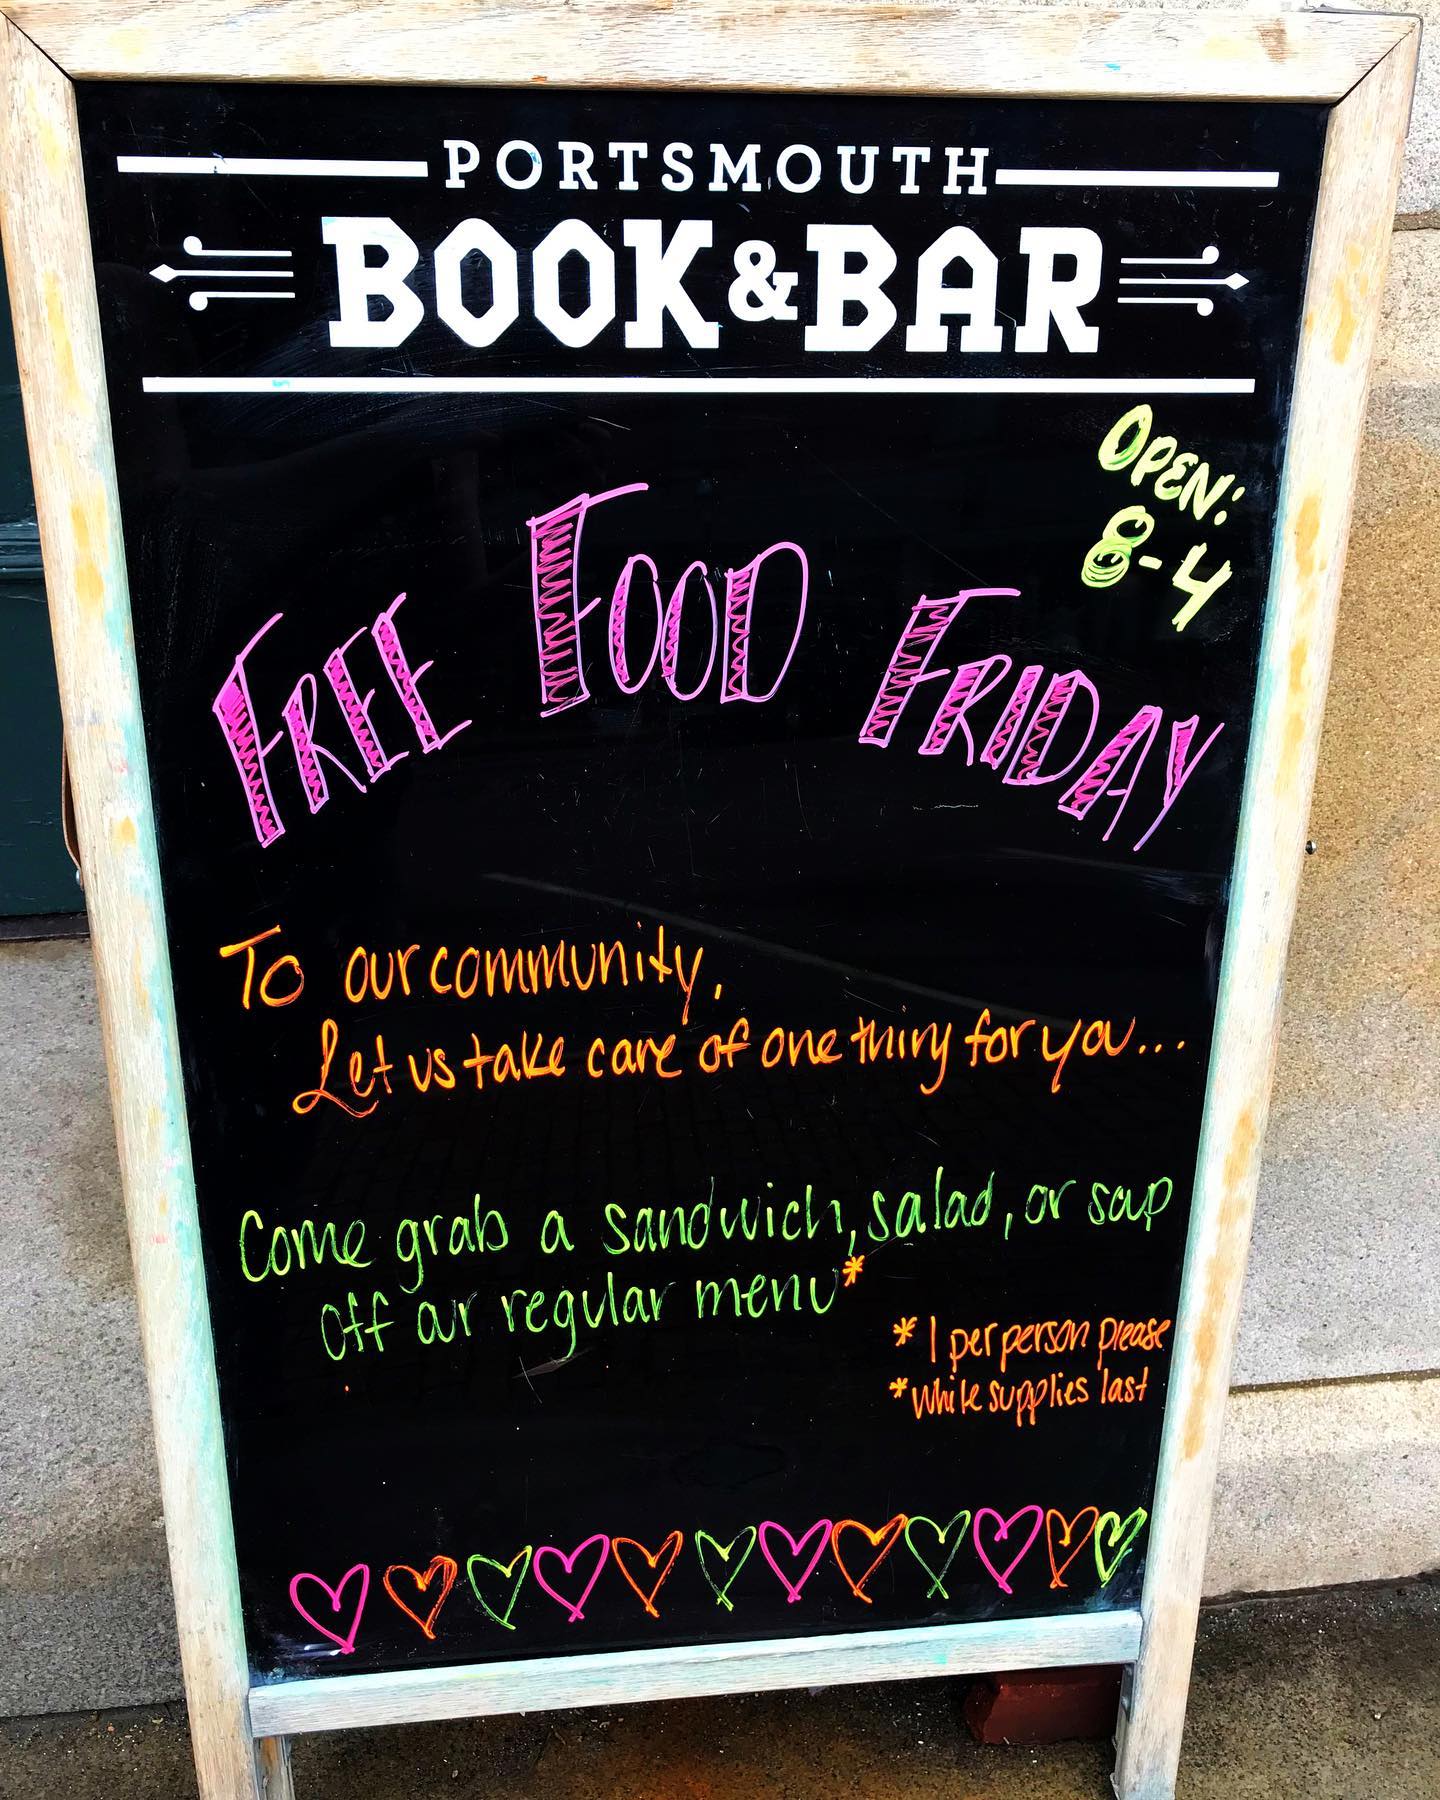 PORTSMOUTH
BOOK & BAR
OPEN:
8-4
FREE FOOD FRIDAY
To our community,
Let us take care of one thing for you...
Come grab a sandwich, salad, or soup
off our regular menu*
* 1 per person please
* while supplies last